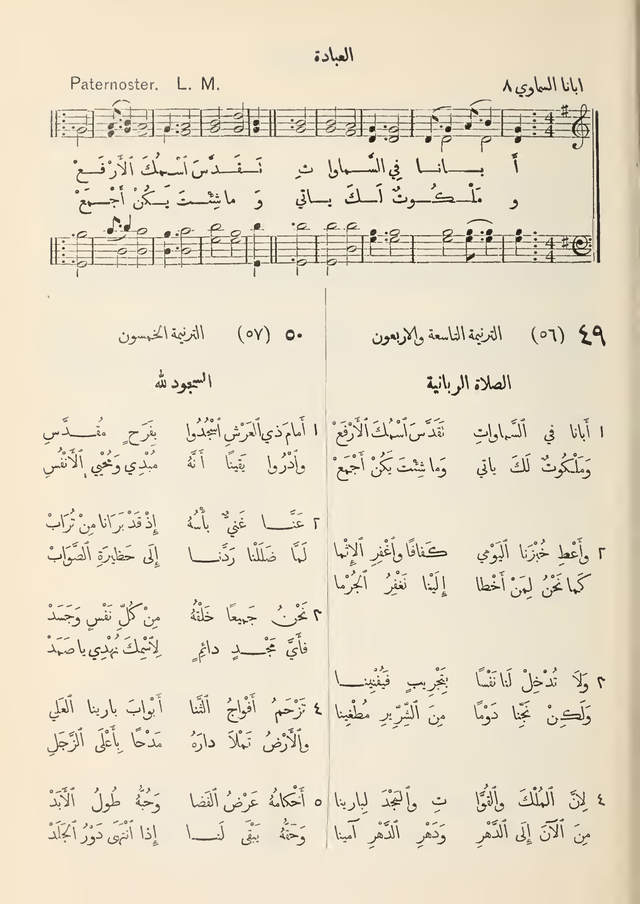 العبادة
ابانا السماوي ٨
Paternoster. L. M.
أ بــانــا فِي السَّماوا تِ تَــقَــدَّسَ ٱسْــمُكَ ٱلْأَرْفَعْ
و مَلْــكُوتٌ لَــكَ ياتي وَ ما شِئْــتَ يَكُنْ أَجْمَعْ
٤٩ (٥٦) الترنيمة التاسعة والاربعون
الصلاة الربانية
١ أَبانا في ٱلسَّماواتِ تَقَدَّسَ ٱسْمُكَ ٱلأَرْفَعْ
وَمَلْكُوتٌ لَكَ ياتي وَماشِئْتَ يَكُنْ أَجْمَعْ
٢ وأَعْطِ خُبْزَنا ٱليَوْمِي كَفافًا وَٱغْفِرِ ٱلإِثْما
كَما نَحْنُ لِمَنْ أَخْطا إِلَيْنا نَغْفِرُ ٱلجُرْما
٣ وَلَا تُدْخِلْ لَنا نَفْسًا بِتَجْرِيبٍ فَيُفْنِينــا
وَلَـكِـنْ نَجِّنا دَوْمًا مِنَ ٱلشِّرِّيرِ مُطْغِينا
٤ لِأَنَّ ٱلمُلْكَ وَٱلقُوَّا تِ وٱلمَجْدَ لِبارِينا
مِنَ ٱلآنَ إِلَى ٱلدَّهْرِ وَدَهْرِ ٱلدَّهْرِ آمينا
٥٠ (٥٧) الترنيمة الخمسون
السجود لله
١ أَمامَ ذي ٱلعَرْشِ ٱسْجُدُوا بِفَرَحٍ مقَــدَّسِ
وٱدْرُوا يَقينًا أَنَّهُ مُبْدِي وَمُحْيِي ٱلأَنْفُسِ
٢ عَنَّــا غَنِيٌّ بأْسُهُ إِذْ قَدْ بَرَانا مِنْ تُرَابْ
لَمَّا ضَلَلْنا رَدَّنــا إِلَى حَظيرَةِ ٱلصَّوَابْ
٣ نَحْنُ جَميعًا خَلْقُهُ مِنْ كُلِّ نَفْسٍ وَجَسَدْ
فأَيَّ مَجْــدٍ دائِمٍ لِٱسْمِكَ نُهْدِي يا صَمَدْ
٤ تَزْحَمُ أَفْواجُ ٱلثَّنا أَبْوَابَ بارينا ٱلعَلي
وٱلأَرْضُ تَمْلَأ دارَهُ مَدْحًا بِأَعْلَى ٱلزَّجَلِ
٥ أَحْكامُهُ عَرْضُ ٱلفَضا وَحُبُّهُ طُولُ ٱلأَبَدْ
وَحَقُّهُ يَبْقَى لَنــا إِذا ٱنْتَهَى دَوْرُ ٱلجَلَدْ